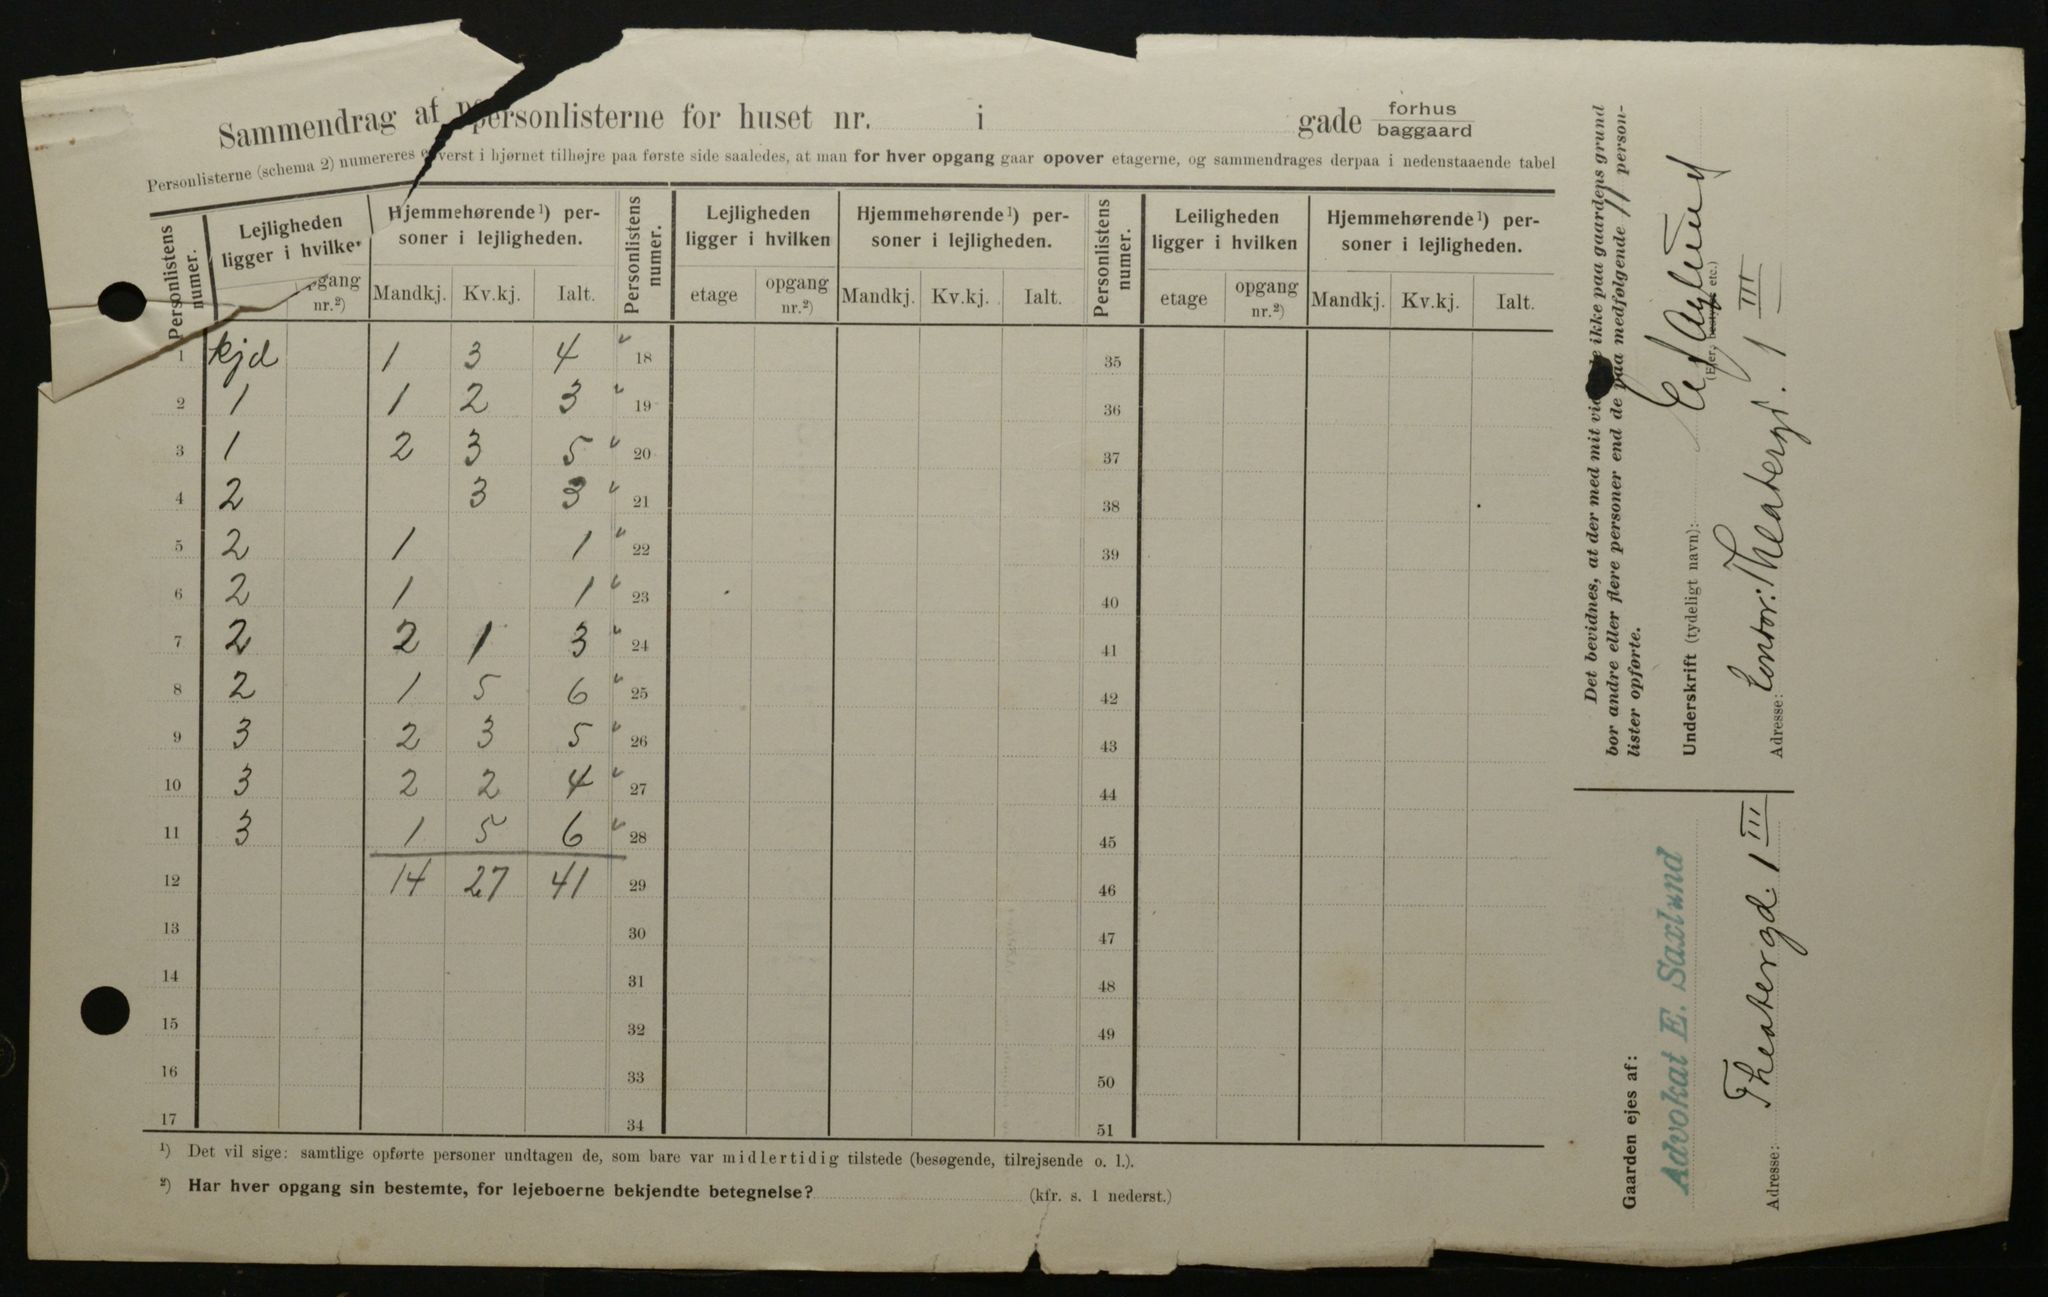 Sammendrag af personlisterne for huset nr. i gade forhus
baggaard
Personlisterne (schema 2) numereres øverst i hjørnet tilhøjre paa første side saaledes, at man for hver opgang gaar opover etagerne, og sammendrages derpaa i nedenstaaende tabel
Personlistens numer. Lejligheden ligger i hvilken Hjemmehørende¹) personer i lejligheden. Personlistens numer. Lejligheden ligger i hvilken Hjemmehørende¹) personer i lejligheden. Personlistens numer. Leiligheden ligger i hvilken Hjemmehørende¹) personer i lejligheden.
opgang nr.²) Mandkj. Kv.kj. Ialt. etage opgang nr.²) Mandkj. Kv.kj. Ialt. etage opgang nr.²) Mandkj. Kv.kj. Ialt.
1 kjd 1 3 4 18 35
2 1 1 2 3 19 36
3 1 2 3 5 20 37
4 2 3 3 21 38
5 2 1 1 22 39
6 2 1 1 23 40
7 2 2 1 3 24 41
8 2 1 5 6 25 42
9 3 2 3 5 26 43
10 3 2 2 4 27 44
11 3 1 5 6 28 45
12 14 27 41 29 46
13 30 47
14 31 48
15 32 49
16 33 50
17 34 51
¹) Det vil sige: samtlige opførte personer undtagen de, som bare var midlertidig tilstede (besøgende, tilrejsende o. l.).
²) Har hver opgang sin bestemte, for lejeboerne bekjendte betegnelse? (kfr. s. 1 nederst.)
Det bevidnes, at der med mit vidende ikke paa gaardens grund
bor andre eller flere personer end de paa medfølgende 11 person-
lister opførte.
Underskrift (tydeligt navn): E Saxlund
(Ejer, bestyrer etc.)
Adresse: Contor: Theatergd. 1 III
Gaarden ejes af:
Advokat E. Saxlund
Adresse: Theatergd. 1 III